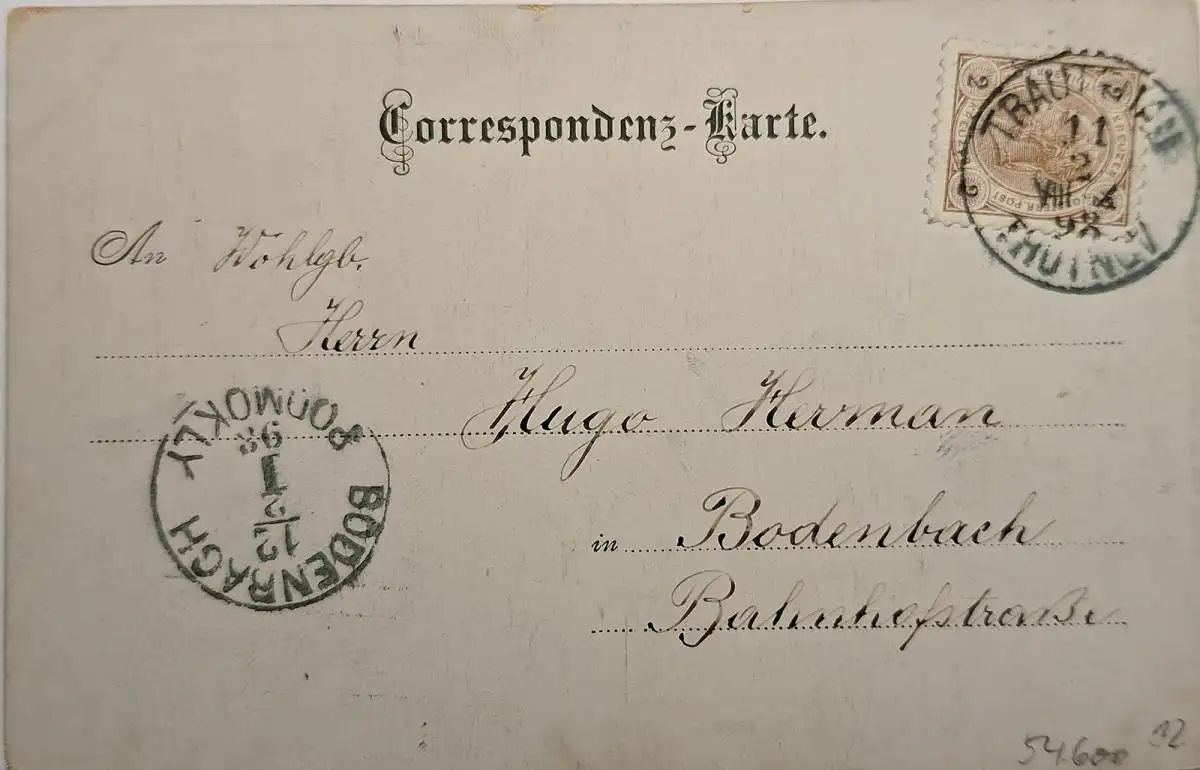 Correspondenz-Karte.
2 2
2
TRAUTENAU
11
2
VIII
98
TRUTNOV
An Wohlgb.
Herrn
Hugo Herman
in Bodenbach
Bahnhofstraße
BODENBACH
PODMOKLY
12
98
54600
12